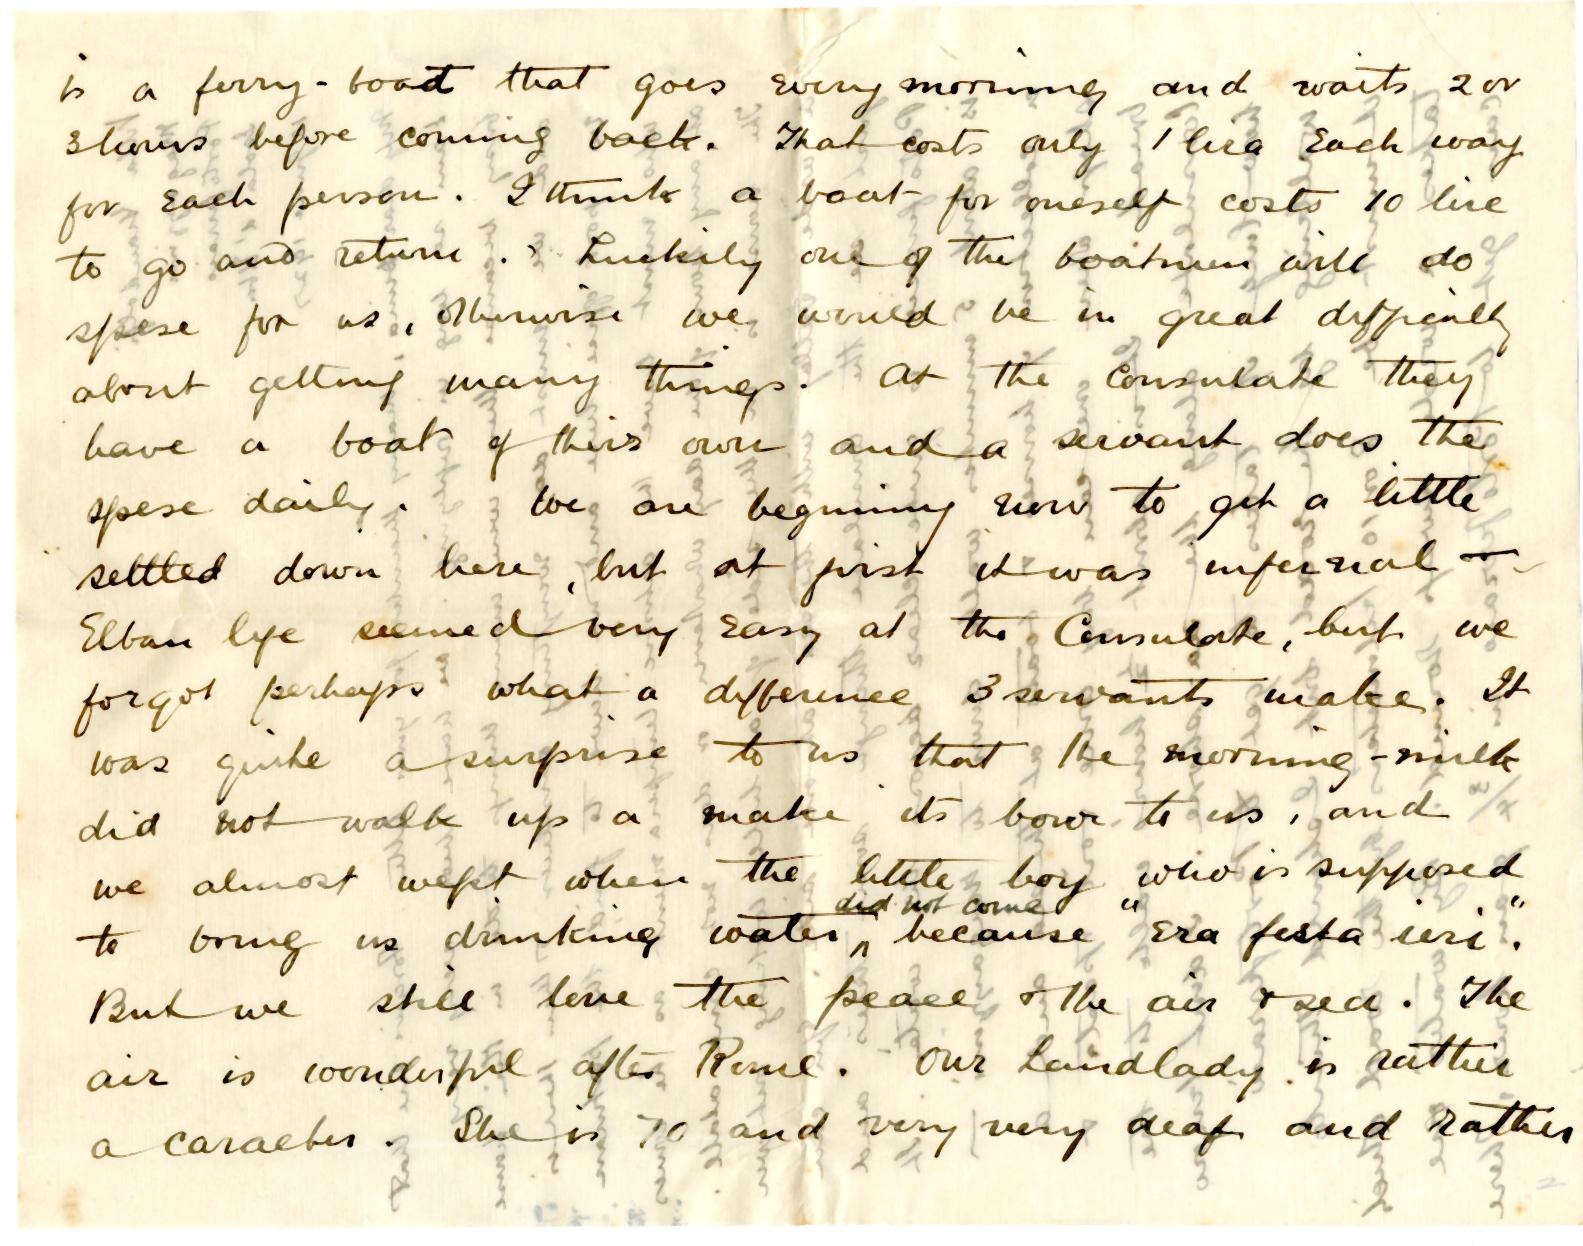 is a ferry-boat that goes every morning and waits 2 or
3 hours before coming back. That costs only 1 lira each way
for each person. I think a boat for oneself costs 10 lire
to go and return. Luckily one of the boatmen will do
spese for us, otherwise we would be in great difficulty
about getting many things. At the Consulate they
have a boat of theirs own and a servant does the
spese daily. We are beginning now to get a little
settled down here, but at first it was infernal —
Elban life seemed very easy at the Consulate, but we
forgot perhaps what a difference 3 servants make. It
was quite a surprise to us that the morning-milk
did not walk up a make its bow to us, and
we almost wept when the little boy who is supposed
did not come
to bring us drinking water, because "Era festa ieri".
But we still love the peace & the air & sea. The
air is wonderful after Rome. Our Landlady is rather
a caracter. She is 70 and very very deaf and rather